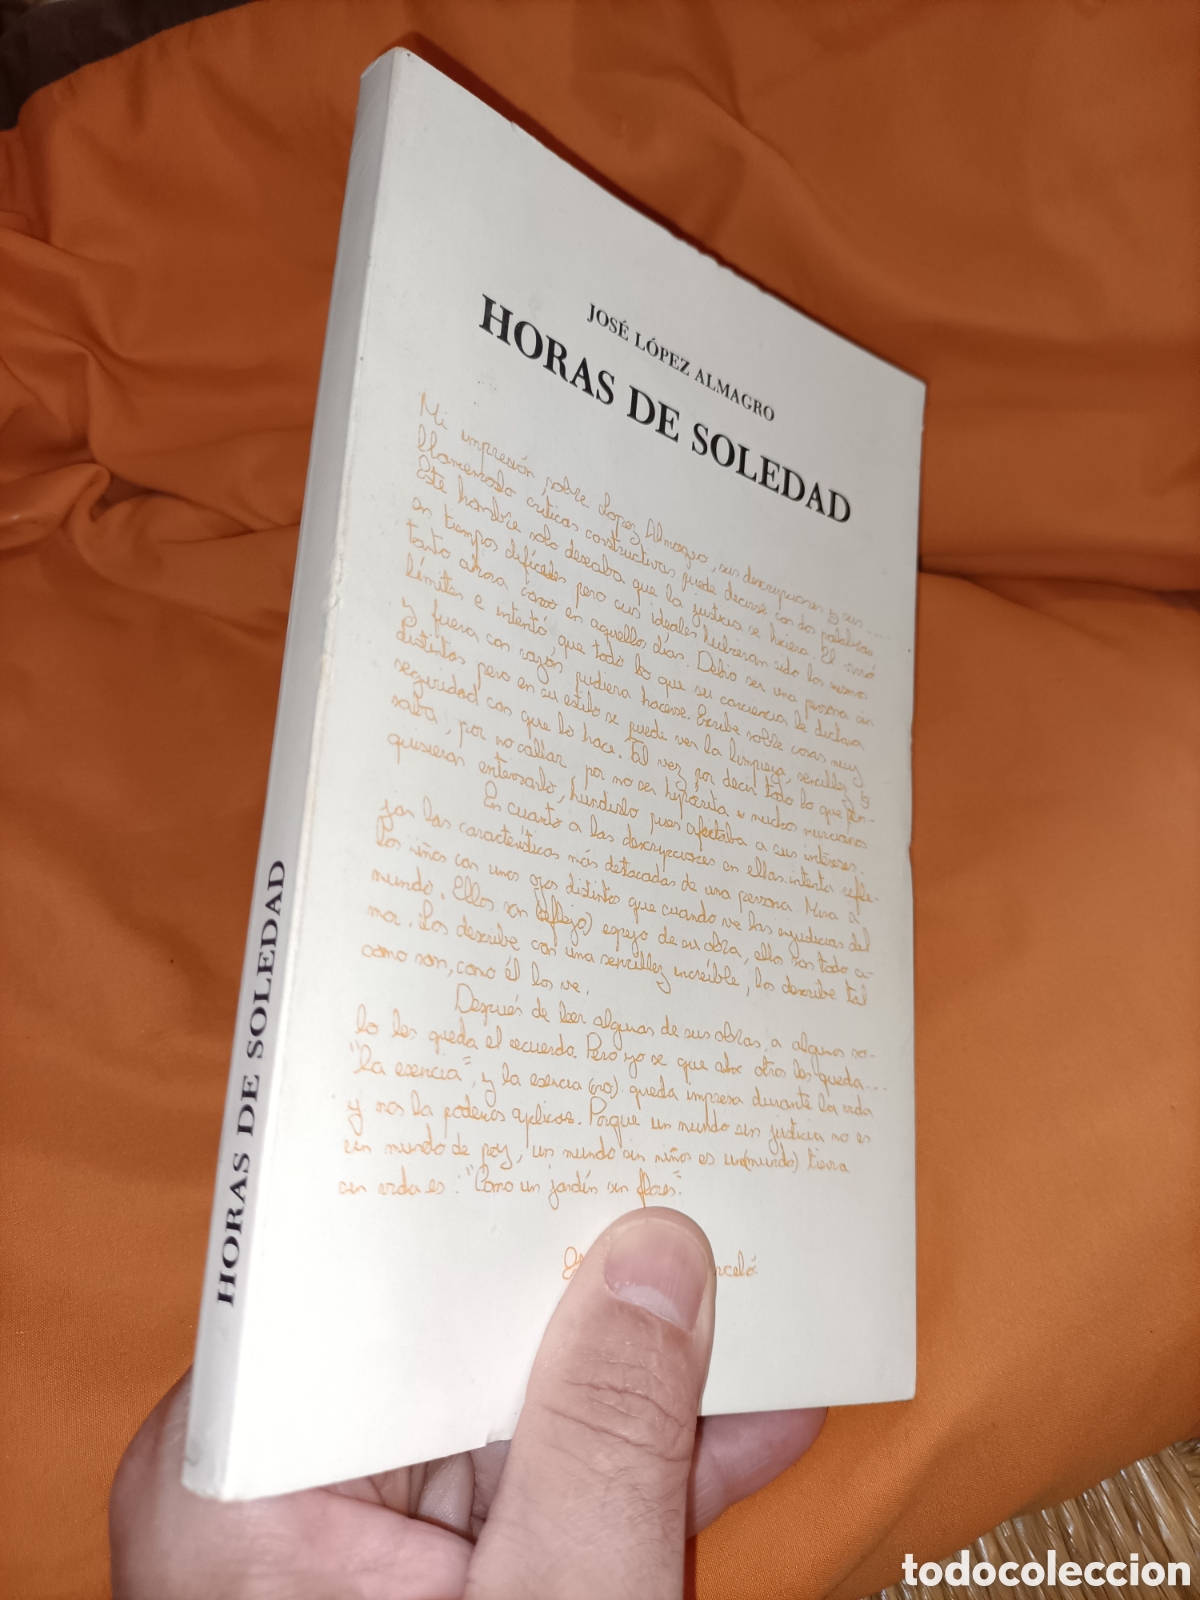 JOSÉ LÓPEZ ALMAGRO
HORAS DE SOLEDAD
Mi impresión sobre Lopez Almagro, sus descripciones y sus....
llamemoslo criticas constructivas puede decirse con dos palabras
Este hombre solo deseaba que la justicia se hiciera. El vivió
en tiempos difíciles pero sus ideales hubieran sido los mismos
tanto ahora como en aquellos días. Debio ser una persona sin
límites e intentó, que todo lo que su conciencia le dictara
y fuera con razón pudiera hacerse. Escribe sobre cosas muy
distintas pero en su estilo se puede ver la limpieza, sencillez y
seguridad con que lo hace. Tal vez por decir todo lo que pen-
saba, por no callar por no ser hipócrita muchos murcianos
quisieran enterrarlo, hundirlo pues afectaba a sus intereses.
En cuanto a las descripciones en ellas intenta refle-
jar las características más destacadas de una persona. Mira a
los niños con unos ojos distintos que cuando ve las injusticias del
mundo. Ellos son (reflejo) espejo de su obra, ellos son todo a-
mor. Los describe con una sencillez increíble, los describe tal
como son, como él los ve.
Después de leer algunas de sus obras, a algunos so-
lo les queda el recuerdo. Pero yo se que a otros les queda....
"la esencia", y la esencia (no) queda impresa durante la vida
y nos la podemos aplicar. Porque un mundo sin justicia no es
un mundo de paz, un mundo sin niños es un(mundo) tierra
sin vida es: "Como un jardín sin flores".
HORAS DE SOLEDAD
todocoleccion